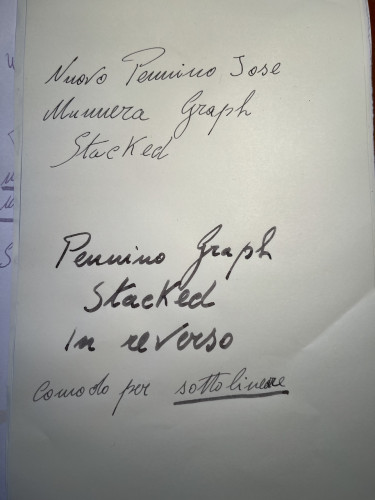 Nuovo Pennino Jose
Munuera Graph
Stacked
Pennino Graph
Stacked
In reverso
comodo per sottolineare